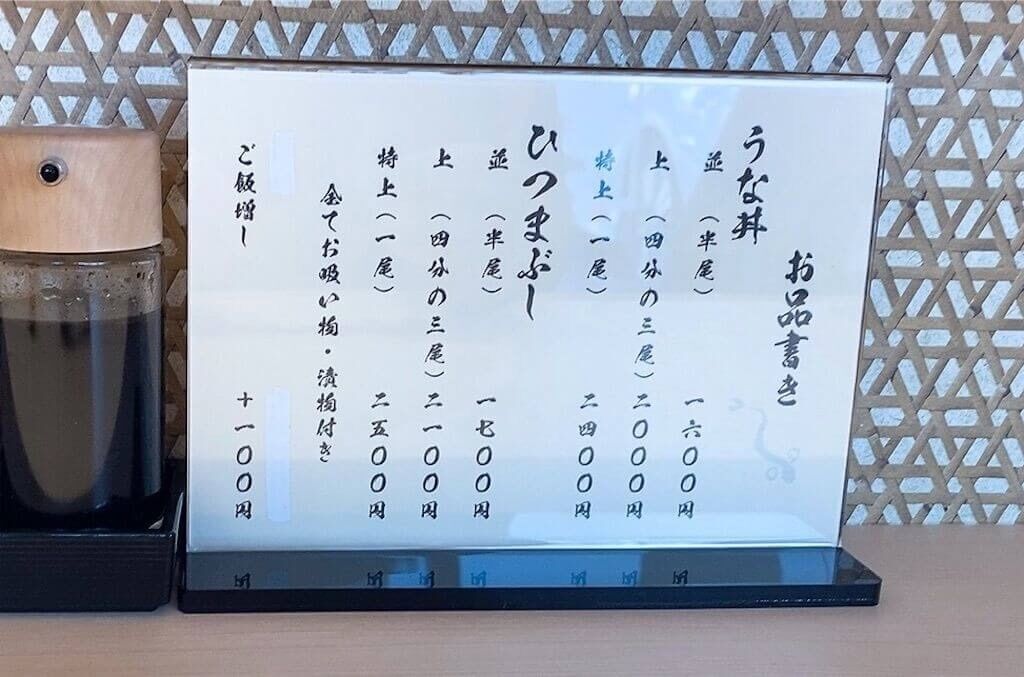 お品書き
うな丼
並（半尾）一六〇〇円
上（四分の三尾）二〇〇〇円
特上（一尾）二四〇〇円
ひつまぶし
並（半尾）一七〇〇円
上（四分の三尾）二一〇〇円
特上（一尾）二五〇〇円
全てお吸い物・漬物付き
ご飯増し 十一〇〇円